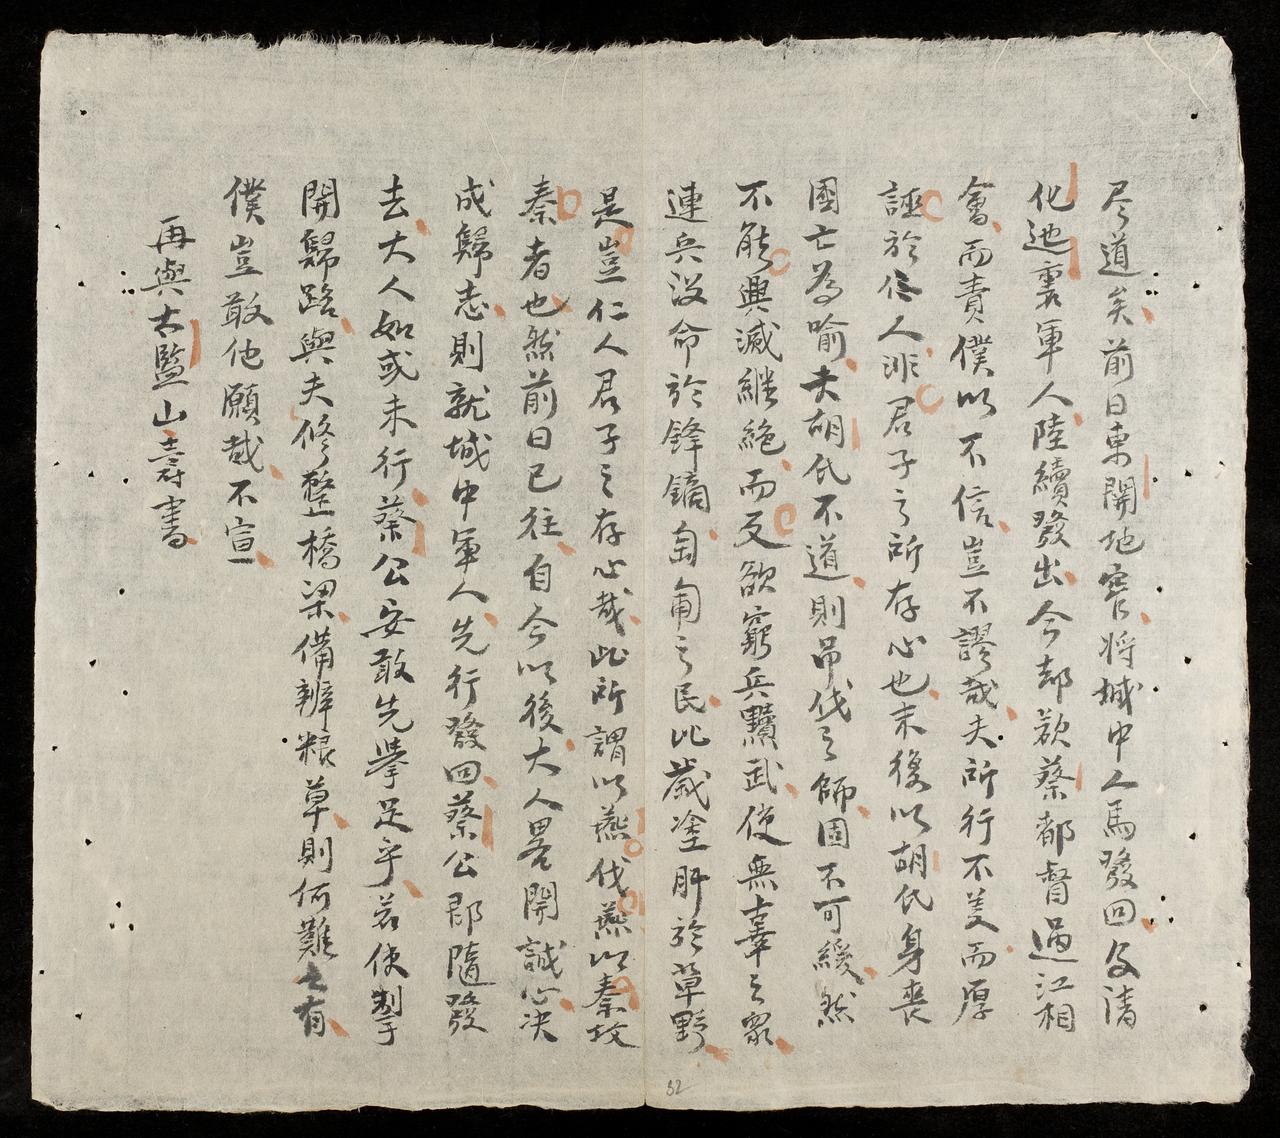 尽道矣前日東関地窄将城中人馬發回及清
化池裏軍人陸續發出今却欲蔡都督過江相
會而責僕以不信豈不謬哉夫所行不美而厚
誣於信人非君子之所存心也末後以胡氏身喪
國亡為喻夫胡氏不道則吊伐之師固不可緩然
不能興滅継絶而反欲窮兵黷武使無辜之衆
連兵没命於鋒鏑匍匐之民比歲塗肝於草野
是豈仁人君子之存心哉此所謂以燕伐燕以秦攻
秦者也然前日已往自今以後大人畧開誠心决
成歸志則就城中軍人先行發回蔡公郡隨發
去大人如或未行蔡公安敢先舉足乎若使掣
開歸路與夫修整橋梁備辨粮草則何難之有
僕豈敢他願哉不宣
再與太監山壽書
52